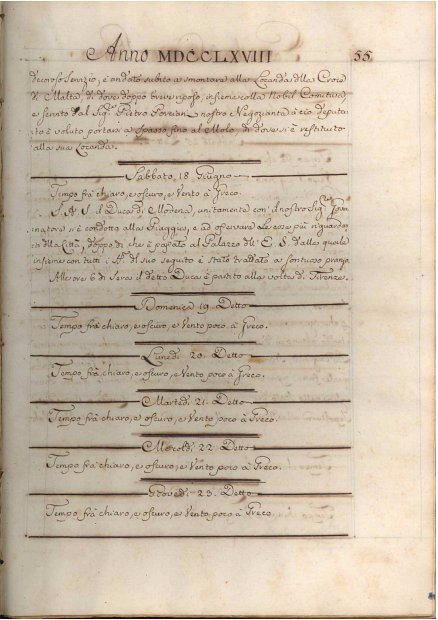 Anno MDCCLXVIII 55
decoroso servizio, è andato subito a smontare alla Locanda della Croce
di Malta, di dove doppo breve riposo, insieme colla Nobil Comitiva,
e servito dal Sig.r Pietro nostro Negoziante a ciò deputa
to è voluto portarsi a spasso fino al Molo, di dove si è restituito
alla sua Locanda.
Sabbato, 18. Giugno
Tempo frà chiaro, e oscuro, e Vento à Greco.
S. A. S. il Duca di Modena, unitamente con il nostro Sig.
natore si è condotto alla Piaggia, e ad osservare le cose più riguardevoli
della Città, doppo di che è passato al Palazzo dell' E. S. dalla quale
insieme con tutti i del suo seguito è stato trattato a sontuoso pranzo
Alle ore 6 di sera il detto Duca è partito alla volta di Firenze.
Domenica 19. Detto
Tempo frà chiaro, e oscuro, e Vento poco à Greco.
Lunedì 20. Detto
Tempo frà chiaro, e oscuro, e Vento poco à Greco.
Martedì 21. Detto
Tempo frà chiaro, e oscuro, e Vento poco à Greco.
Mercoldì 22. Detto
Tempo frà chiaro, e oscuro, e Vento poco à Greco.
Giovedì 23. Detto
Tempo frà chiaro, e oscuro, e Vento poco à Greco.